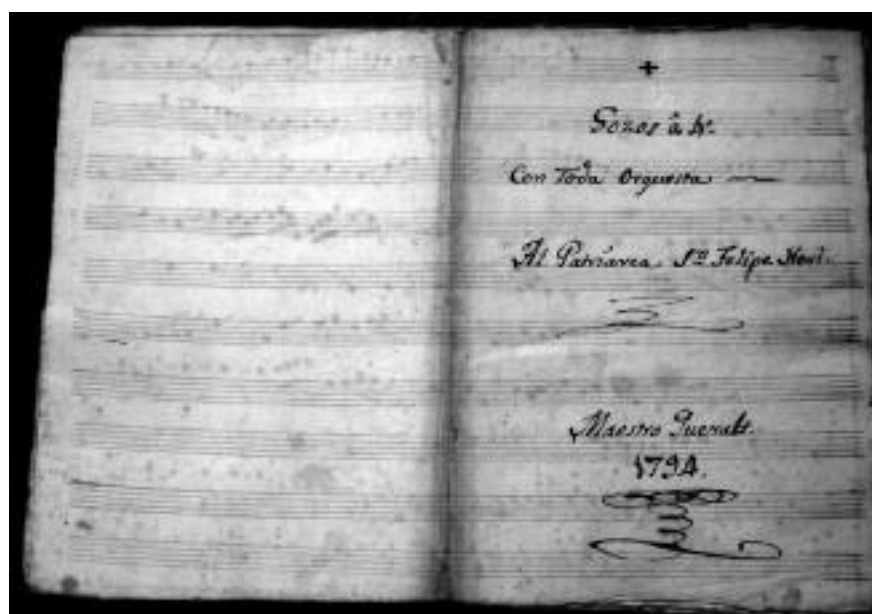 +
Gozos â 4º.
Con Toda Orquesta
Al Patriarca Sn. Felipe Neri.
Maestro Queralt.
1794.